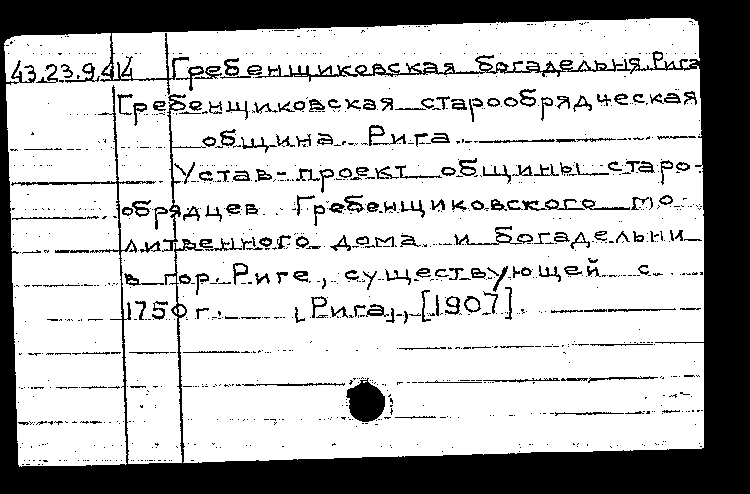 43.23.9.414 Гребенщиковская богадельня. Рига
Гребенщиковская старообрядческая
община. Рига.
Устав-проект общины старо-
обрядцев Гребенщиковского мо-
литвенного дома и богадельни
в гор. Риге, существующей с
1750 г. [Рига], [1907].